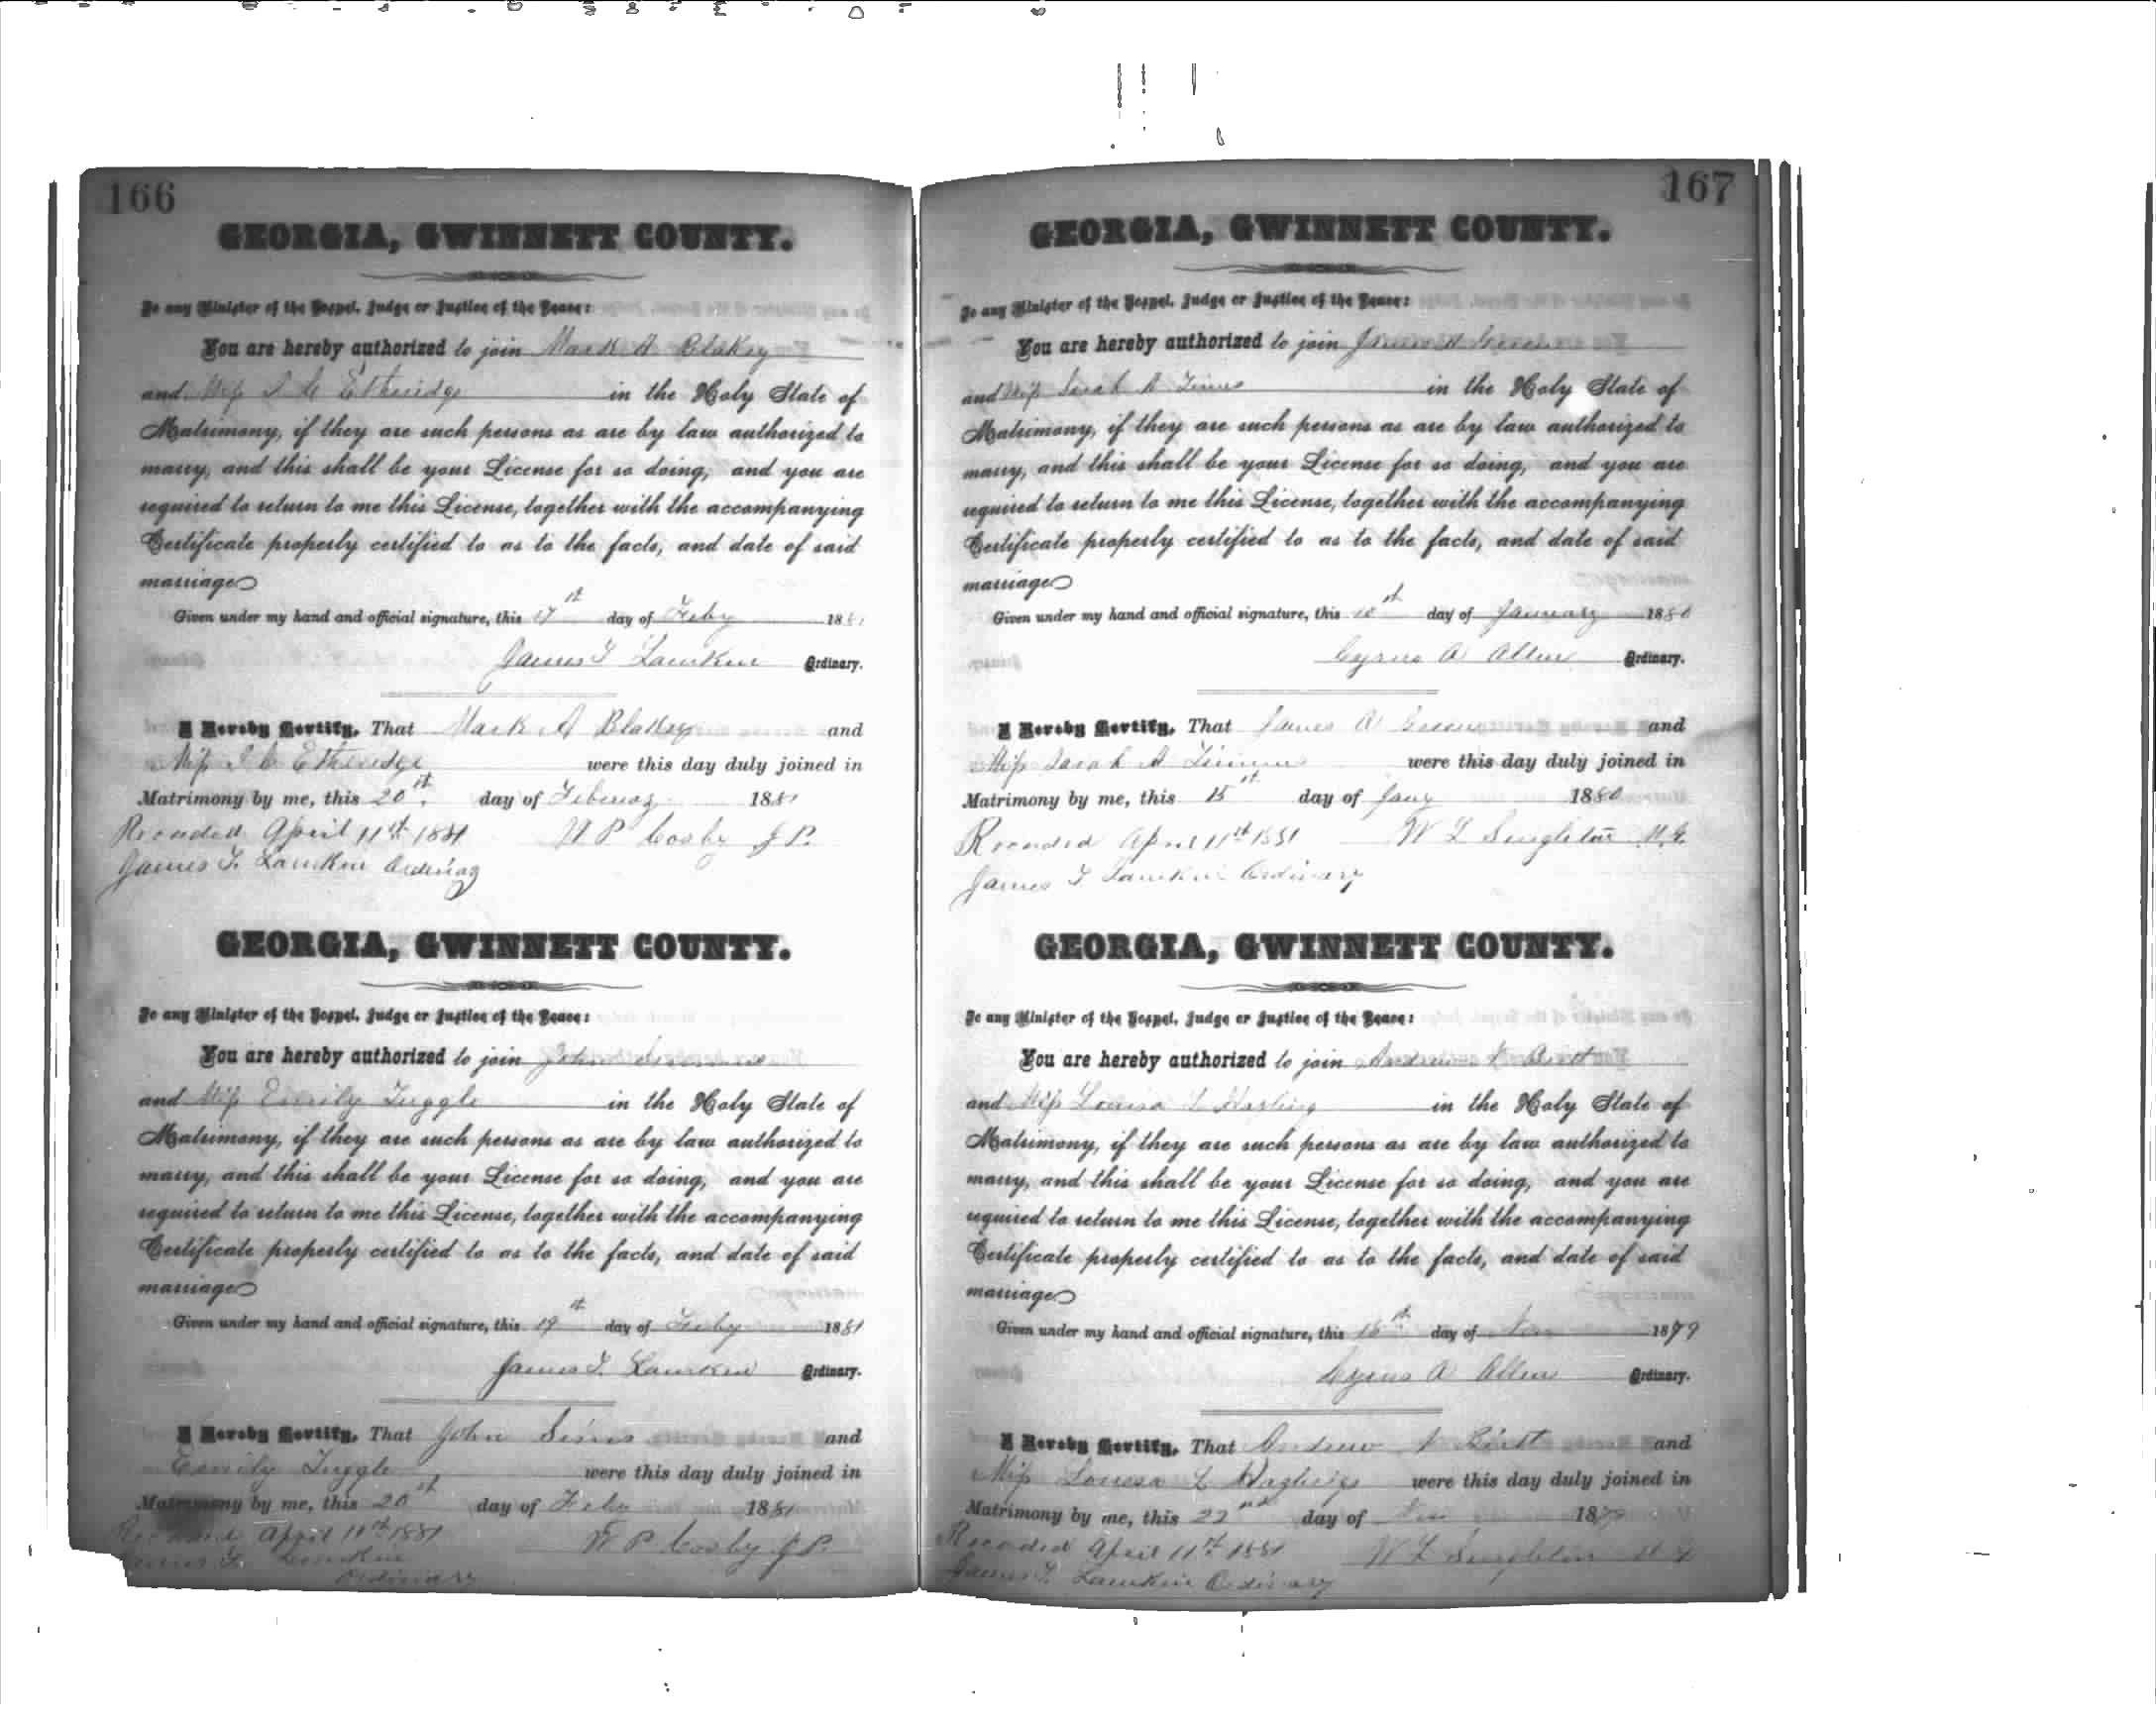 166
GEORGIA, GWINNETT COUNTY.
To any Minister of the Gospel, Judge or Justice of the Peace:
You are hereby authorized to join Mark A Blakey
and Miss I C Etheridge in the Holy State of
Matrimony, if they are such persons as are by law authorized to
marry, and this shall be your License for so doing, and you are
required to return to me this License, together with the accompanying
Certificate properly certified to as to the facts, and date of said
marriage
Given under my hand and official signature, this 17th day of Feby 1881
James T Lamkin Ordinary.
I Hereby Certify, That Mark A Blakey and
Miss I C Etheridge were this day duly joined in
Matrimony by me, this 20th day of Februay 1881
Recorded April 11th 1881 W P Cosby J P.
James T. Lamkin Ordinay
GEORGIA, GWINNETT COUNTY.
To any Minister of the Gospel, Judge or Justice of the Peace:
You are hereby authorized to join John
and Miss Emily Tuggle in the Holy State of
Matrimony, if they are such persons as are by law authorized to
marry, and this shall be your License for so doing, and you are
required to return to me this License, together with the accompanying
Certificate properly certified to as to the facts, and date of said
marriage
Given under my hand and official signature, this 19th day of Feby 1881
James T. Lamkin Ordinary.
I Hereby Certify, That John Sims and
Emily Tuggle were this day duly joined in
Matrimony by me, this 20th day of Feby 1881
Recorded April 11th 1881 W P Cosby J P.
James T. Lamkin
Ordinary
167
GEORGIA, GWINNETT COUNTY.
To any Minister of the Gospel, Judge or Justice of the Peace:
You are hereby authorized to join James A
and Miss Sarah A in the Holy State of
Matrimony, if they are such persons as are by law authorized to
marry, and this shall be your License for so doing, and you are
required to return to me this License, together with the accompanying
Certificate properly certified to as to the facts, and date of said
marriage
Given under my hand and official signature, this 10th day of January 1880
Cyrus A Allen Ordinary.
I Hereby Certify, That James A Green and
Miss Sarah A were this day duly joined in
Matrimony by me, this 15th day of Jany 1880
Recorded April 11th 1881 W L Singleton M.G.
James T Lamkin Ordinary
GEORGIA, GWINNETT COUNTY.
To any Minister of the Gospel, Judge or Justice of the Peace:
You are hereby authorized to join Andrew
and Miss Louisa L in the Holy State of
Matrimony, if they are such persons as are by law authorized to
marry, and this shall be your License for so doing, and you are
required to return to me this License, together with the accompanying
Certificate properly certified to as to the facts, and date of said
marriage
Given under my hand and official signature, this 15th day of Nov 1879
Cyrus A Allen Ordinary.
I Hereby Certify, That Andrew and
Miss Louisa L were this day duly joined in
Matrimony by me, this 22nd day of Nov 1879
Recorded April 11th 1881 W L Singleton M G
James T. Lamkin Ordinary